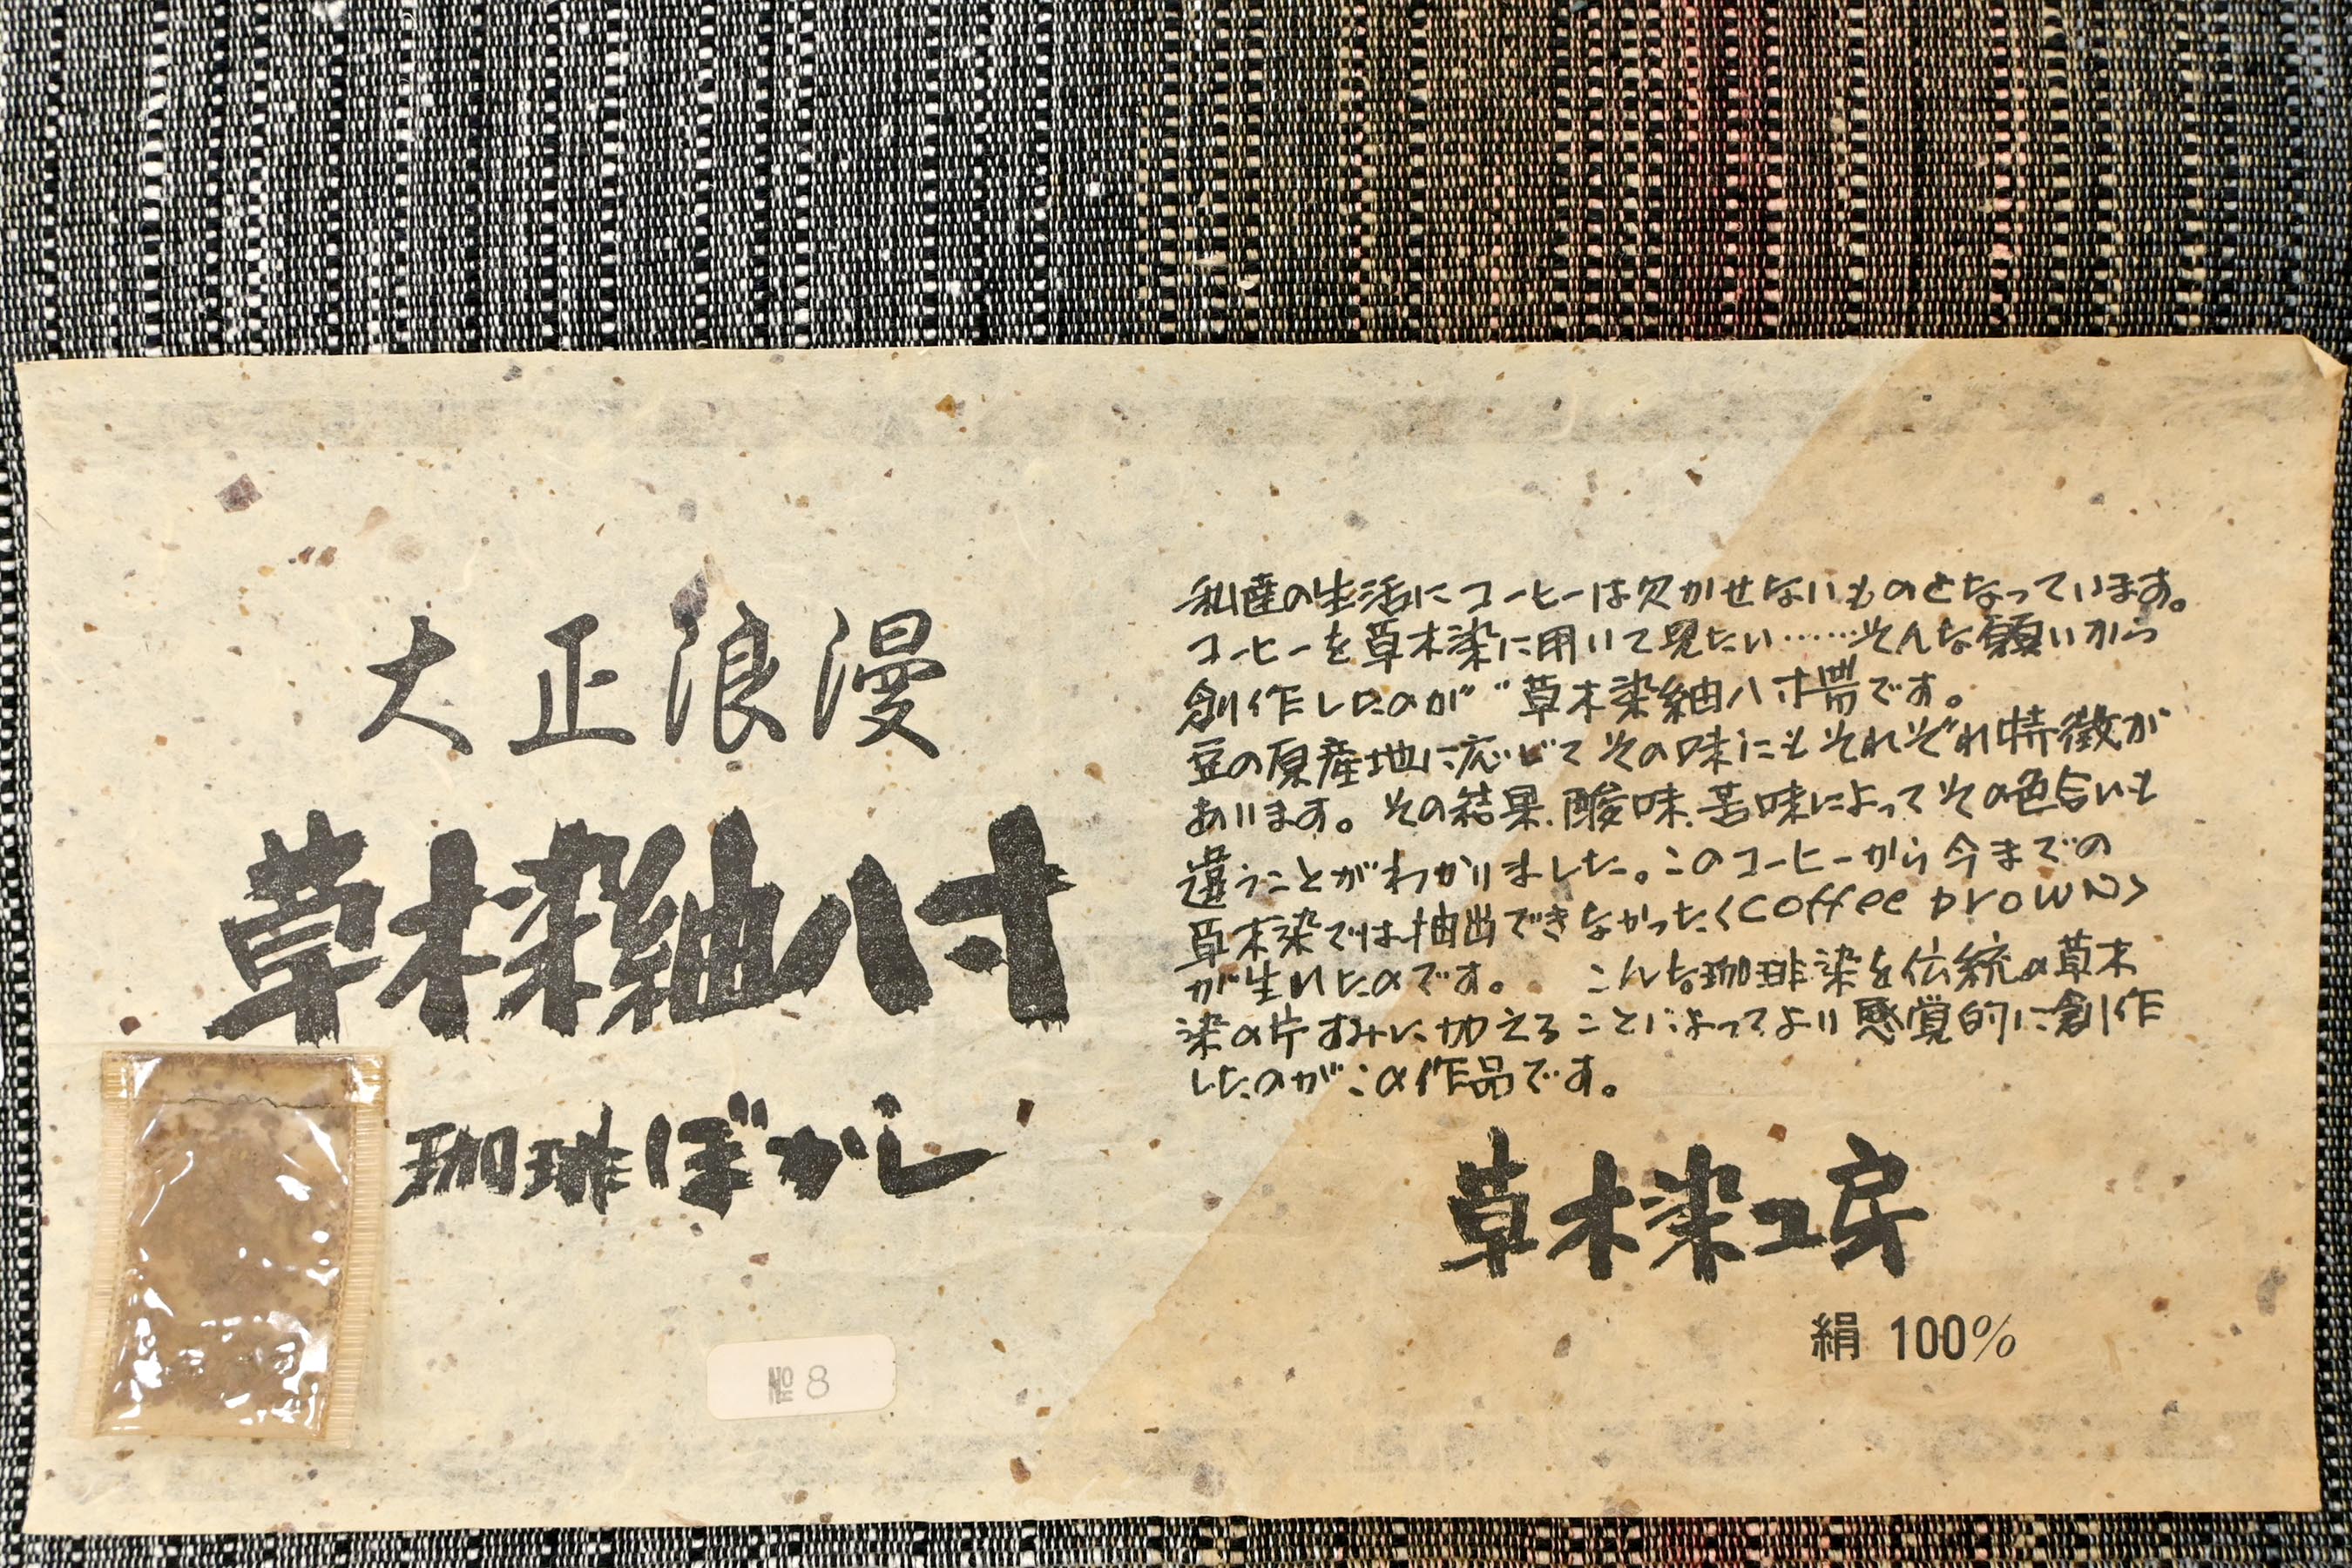 大正浪漫
草木染紬八寸
珈琲ぼかし
№ 8
私達の生活にコーヒーは欠かせないものとなっています。
コーヒーを草木染に用いて見たい……そんな願いから
創作したのが〝草木染紬八寸帯です。
豆の原産地に応じてその味にもそれぞれ特徴が
あります。その結果、酸味、苦味によってその色合いも
違うことがわかりました。このコーヒーから今までの
草木染では抽出できなかった〈coffee brown〉
が生れたのです。 こんな珈琲染を伝統の草木
染の片すみに加えることによってより感覚的に創作
したのがこの作品です。
草木染工房
絹 100%